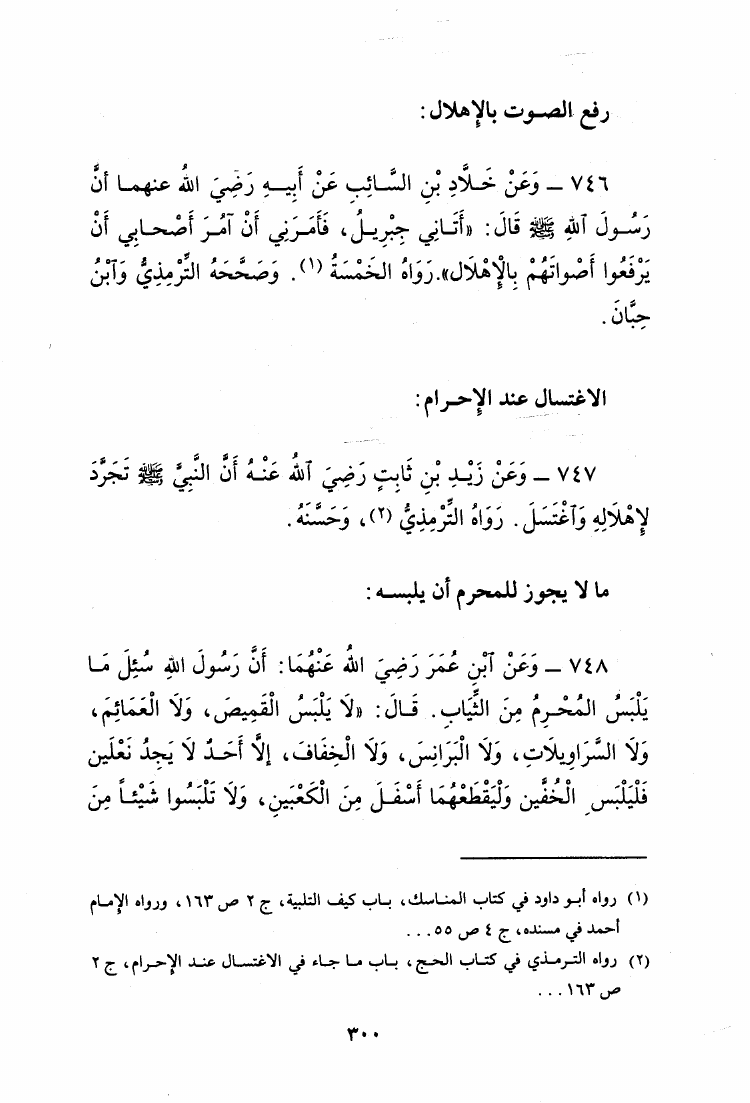 رفع الصوت بالإهلال:
٧٤٦ ــ وَعَنْ خَلَّادِ بْنِ السَّائِبِ عَنْ أَبِيهِ رَضِيَ اللهُ عنهما أنَّ
رَسُولَ ٱللهِ ﷺ قَالَ: «أَتَانِي جِبْرِيلُ، فَأَمَرَنِي أَنْ آمُرَ أَصْحابِي أَنْ
يَرْفَعُوا أَصْواتَهُمْ بِالإِهْلَال».رَوَاهُ الخَمْسَةُ (١). وَصَحَّحَهُ التِّرْمِذِيُّ وَٱبْنُ
حِبَّانَ.
الاغتسال عند الإحرام:
٧٤٧ ــ وَعَنْ زَيْدِ بْنِ ثَابِتٍ رَضِيَ ٱللهُ عَنْهُ أَنَّ النَّبِيَّ ﷺ تَجَرَّدَ
لإِهْلَالِهِ وَٱغْتَسَلَ. رَوَاهُ التِّرْمِذِيُّ (٢)، وَحَسَّنَهُ.
ما لا يجوز للمحرم أن يلبسه:
٧٤٨ ــ وَعَنْ ٱبْنِ عُمَرَ رَضِيَ اللهُ عَنْهُمَا: أَنَّ رَسُولَ اللهِ سُئِلَ مَا
يَلْبَسُ المُحْرِمُ مِنَ الثِّيَابِ. قَالَ: «لَا يَلْبَسُ الْقَمِيصَ، وَلَا الْعَمَائِمَ،
وَلَا السَّرَاوِيلَاتِ، وَلَا الْبَرَانِسَ، وَلَا الْخِفَافَ، إلَّا أَحَدٌ لَا يَجِدُ نَعْلَين
فَلْيَلْبَسِ الْخُفَّينِ وَلْيَقْطَعْهُمَا أَسْفَلَ مِنَ الْكَعْبَينِ، وَلَا تَلْبَسُوا شَيْئاً مِنَ
(١) رواه أبو داود في كتاب المناسك، باب كيف التلبية، ج ٢ ص ١٦٣، ورواه الإمام
أحمد في مسنده، ج ٤ ص ٥٥...
(٢) رواه الترمذي في كتاب الحج، باب ما جاء في الاغتسال عند الإحرام، ج ٢
ص ١٦٣...
٣٠٠